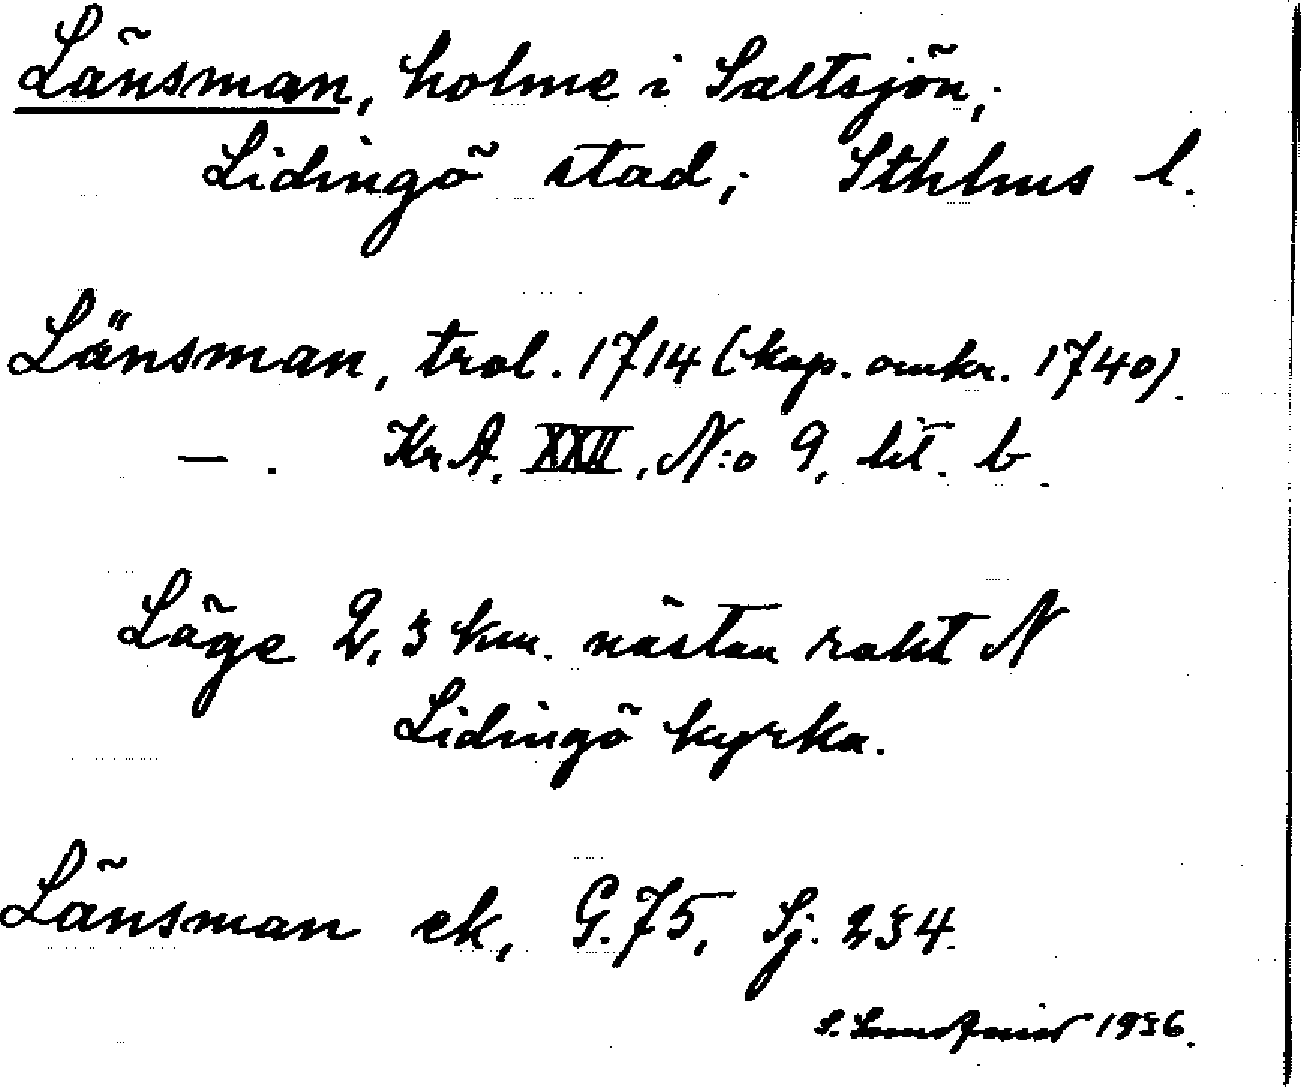 Länsman, holme i Saltsjön,
Lidingö stad; Sthlms l.
Länsman, trol. 1714 (kop. omkr. 1740).
— . Kr A, XXII, N:o 9, lit. b.
Läge 2,3 km. nästan rakt N
Lidingö kyrka.
Länsman ek, G.75, Sj. 234.
S. 1936.